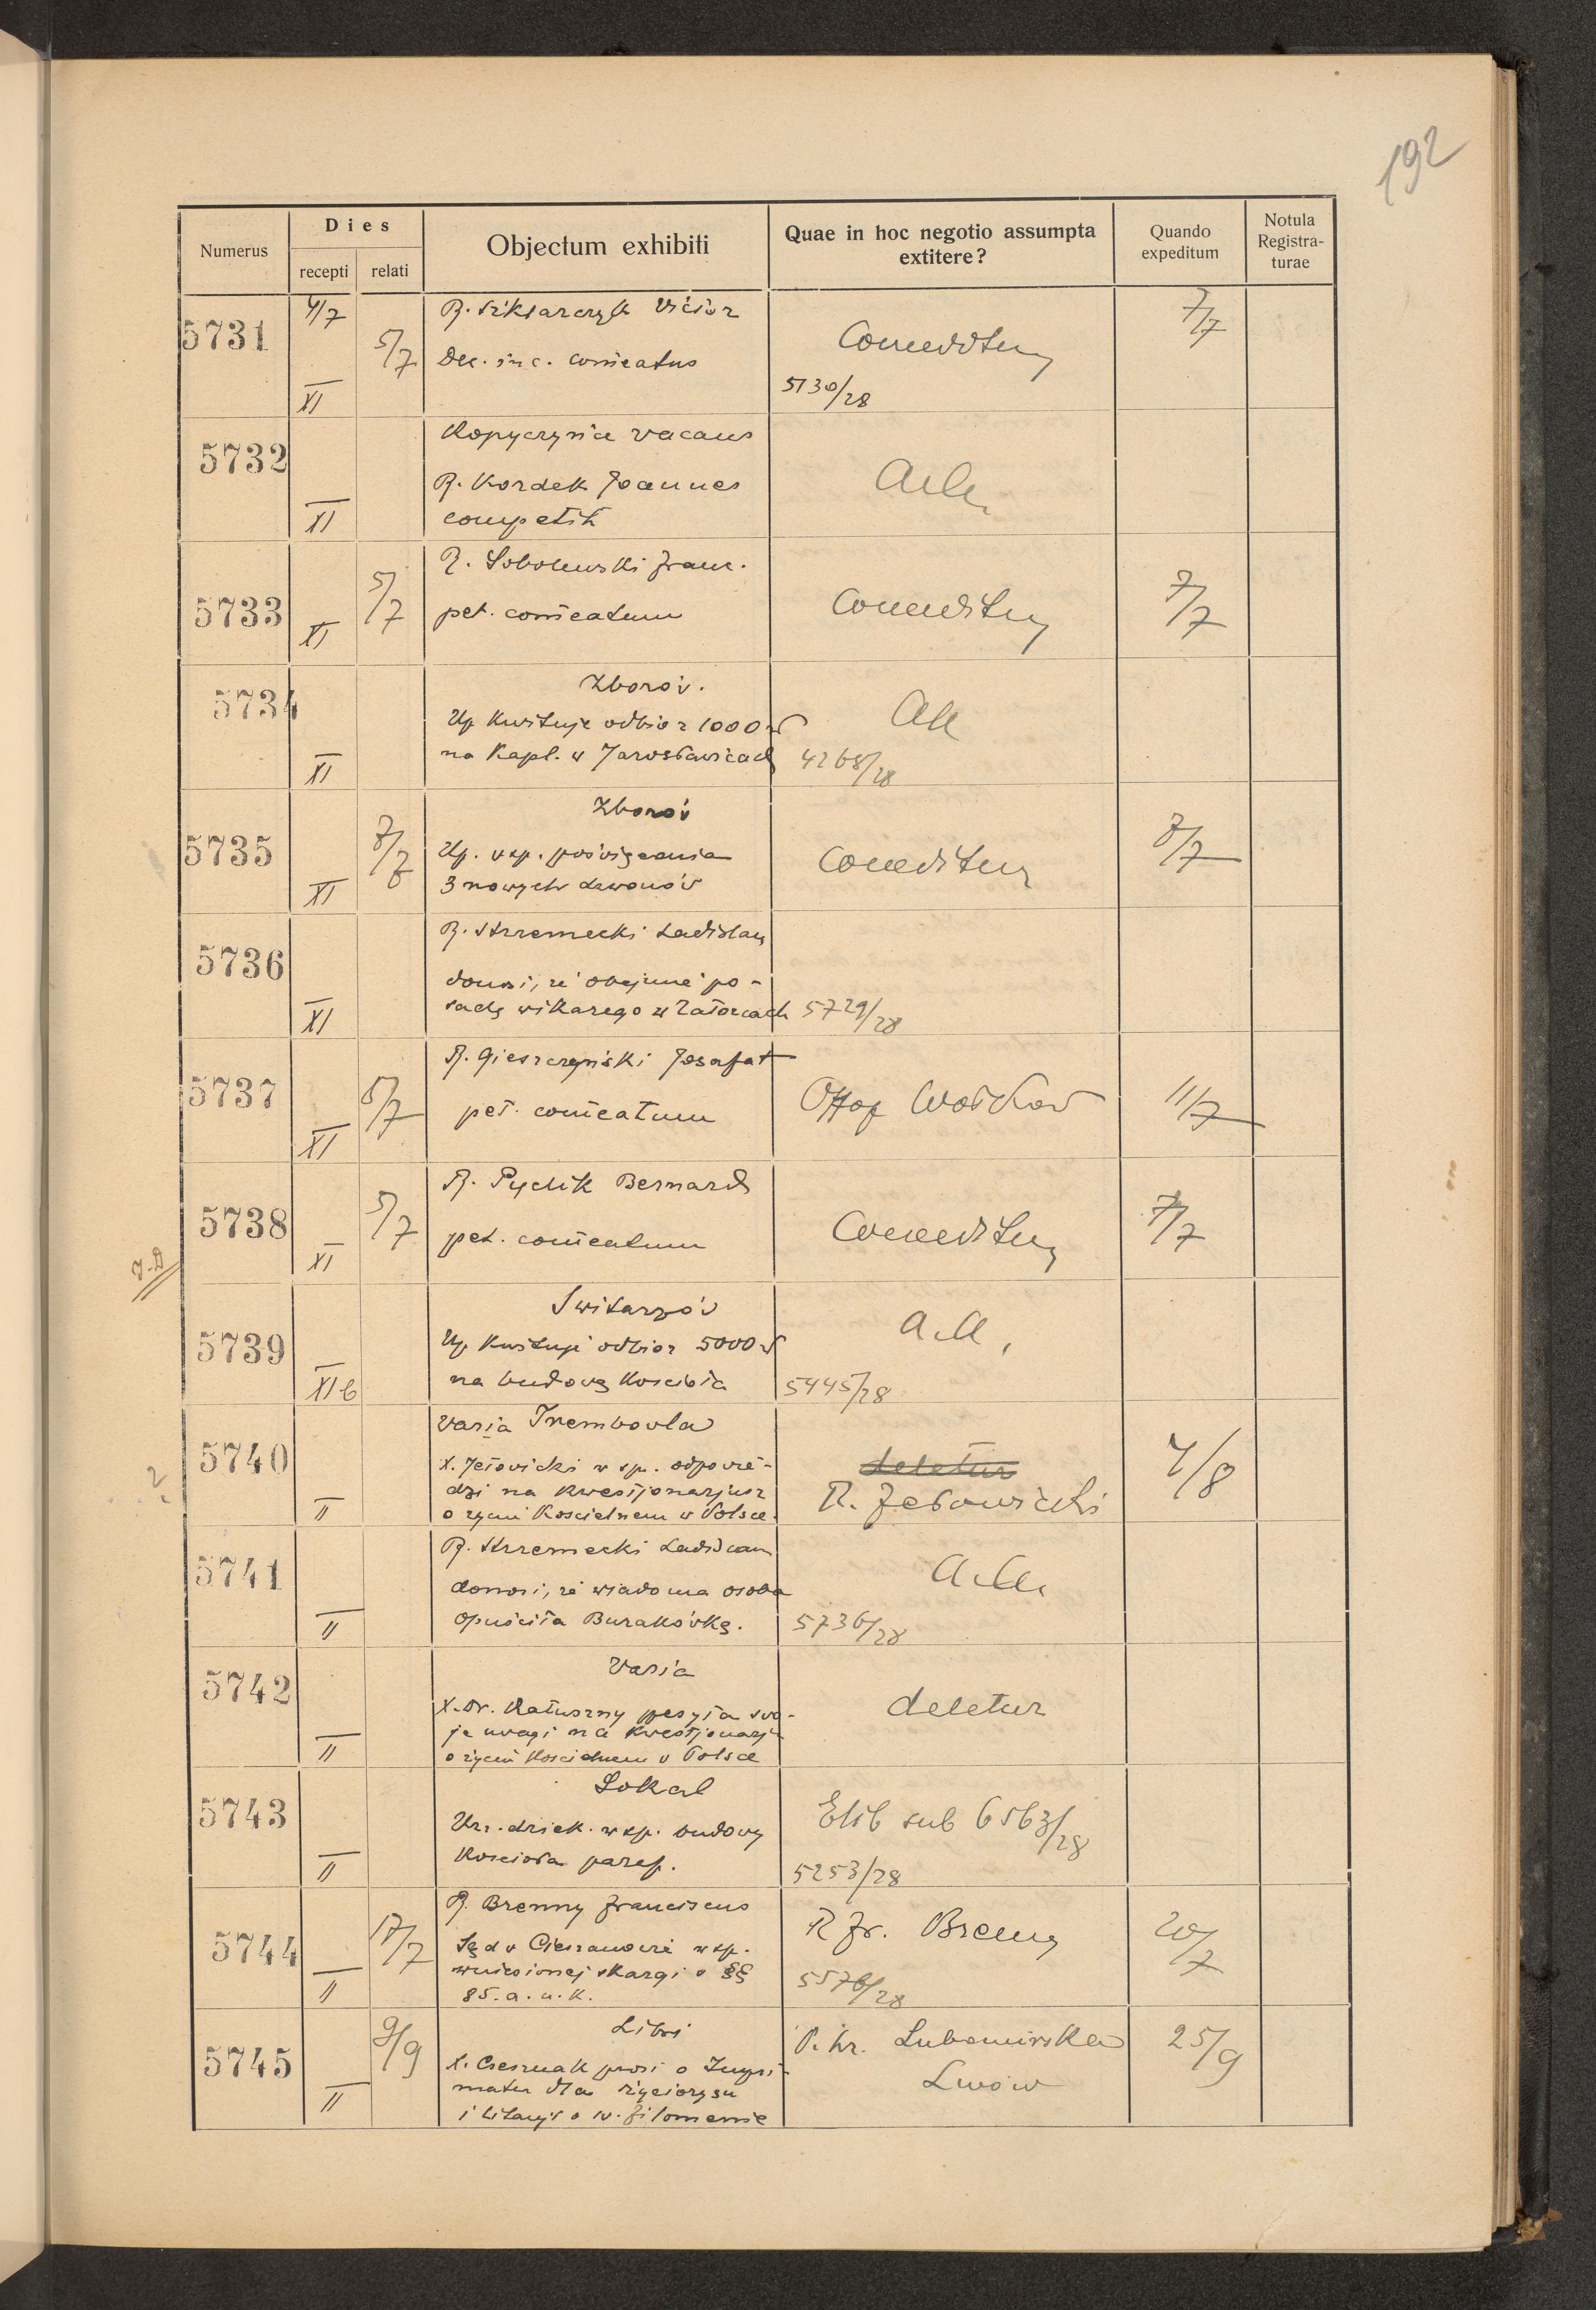 192
Numerus
Dies
recepti relati
Objectum exhibiti
Quae in hoc negotio assumpta
extitere?
Quando
expeditum
Notula
Registra-
turae
5731
4/7
5/7
XI
R. Szklarczyk Victor
Dec. inc. com̄eatus
Conceditur
5130/28
7/7
5732
XI
Kopyczyńce vacans
R. Kordek Joannes
competit
5733
XI
5/7
R. Sobolewski Franc.
pet. com̄eatum
Conceditur
7/7
5734
XI
Zborów.
Up. kwituje odbiór 1000 zł
na kapl. w Jarosławicach
4268/28
5735
XI
Zborów
Up. wsp. poświęcania
3 nowych dzwonów
Conceditur
7/7
5736
XI
R. Strzemecki Ladislaus
donosi, że objął po-
sadę wikarego w Załoźcach
5729/28
5737
XI
5/7
R. Gieszczyński Josafat
pet. com̄eatum
11/7
5738
XI
5/7
R. Pyclik Bernard
pet. com̄eatum
Conceditur
7/7
5739
XI b
Switarzów
Up. kwituje odbiór 5000 zł
na budowę kościoła
5445/28
5740
II
Varia Trembowla
X. Jełowicki w sp. odpowie-
dzi na kwestjonarjusz
o życiu kościelnem w Polsce.
deletur
R. Jełowicki
4/8
5741
II
R. Strzemecki Ladislaus
donosi, że wiadoma osoba
opuściła Burakówkę.
5736/28
5742
II
Varia
X. Dr. Ratuszny swo-
je uwagi na kwestjonarju
o życiu kościelnem w Polsce
deletur
5743
II
Sokal
Urz. dziek. w sp. budowy
kościoła paraf.
Elib sub 6563/28
5253/28
5744
II
17/7
R. Brenny Franciscus
Sąd w Cieszanowie w sp.
wniesionej skargi o §§
85. a. u. k.
R Fr. Brenny
5576/28
20/7
5745
II
9/9
Libri
X. Cieszuak prosi o Impri-
matur dla życiorysu
i litanji o św. Filomenie
P. hr. Lubomirska
Lwów
25/9